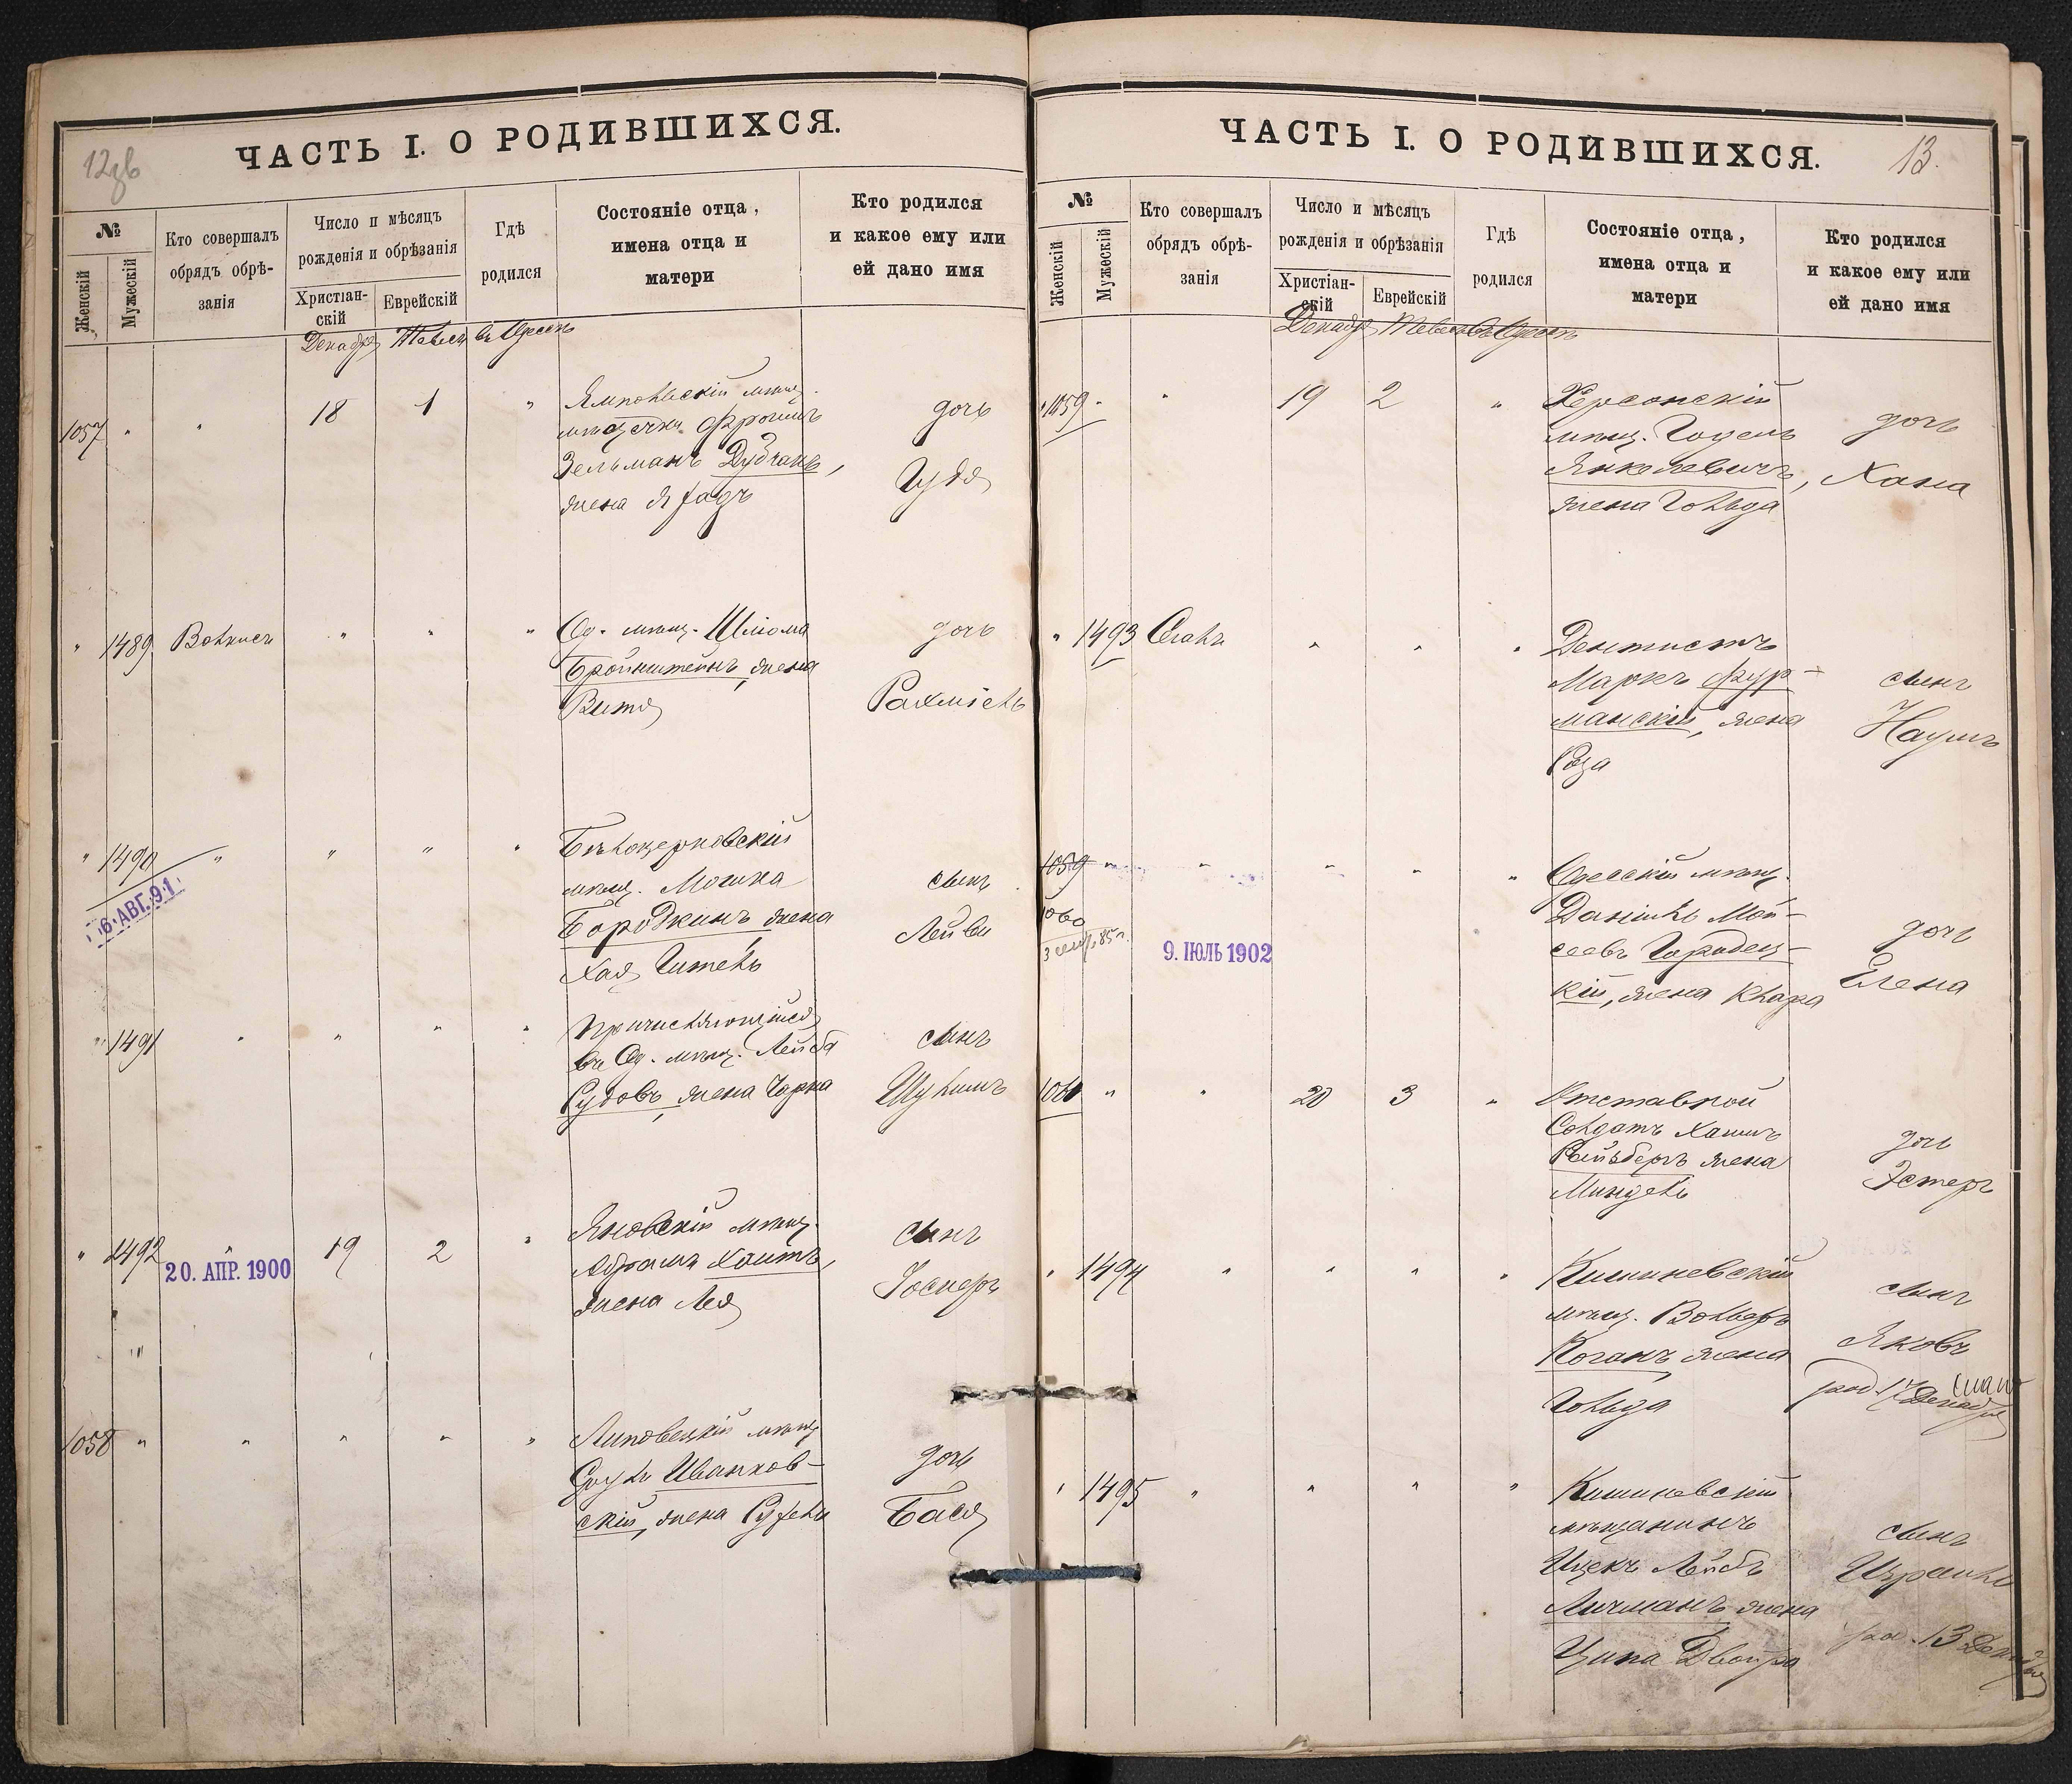 12 об
ЧАСТЬ I. О РОДИВШИХСЯ.
№
Женскій
Мужескій
Кто совершалъ
обрядъ обрѣ-
занія
Число и мѣсяцъ
рожденія и обрѣзанія
Христіан-
скій
Еврейскій
Гдѣ
родился
Состояніе отца,
имена отца и
матери
Кто родился
и какое ему или
ей дано имя
Декабр Тевет въ Одессѣ
1057 " " 18 1 "
Ямпольскій мѣщ.
Фроимъ
Зельманъ Дубчакъ,
жена
дочь
Гудя
" 1489 Волкисъ " " "
Од. мѣщ. Шлиома
Бронштейнъ, жена
Витя
дочь
Рахміель
" 1490 " " " "
6 АВГ. 91
Бѣлоцерковскій
мѣщ. Мошка
Бородкинъ, жена
Хая Гитель
сынъ
Лейви
" 1491 " " " "
Причисляющійся
въ Од. мѣщ. Лейба
Рудовъ, жена Чарна
сынъ
Шулимъ
" 1492 " 19 2 "
20. АПР. 1900
Яновскій мѣщ.
Абрамъ Хаитъ,
жена Лея
сынъ
Іосифъ
1058 " " " " "
Липовецкій мѣщ
Сруль Иванков-
скій, жена Рухель
дочь
Бася
13.
ЧАСТЬ I. О РОДИВШИХСЯ.
№
Женскій
Мужескій
Кто совершалъ
обрядъ обрѣ-
занія
Число и мѣсяцъ
рожденія и обрѣзанія
Христіан-
скій
Еврейскій
Гдѣ
родился
Состояніе отца,
имена отца и
матери
Кто родился
и какое ему или
ей дано имя
Декабр Тевет въ Одессѣ
1059 " " 19 2 "
Херсонскій
мѣщ. Годель
Янкелевичъ,
жена Гольда
дочь
Хана
" 1493 " " "
Дентистъ
Маркъ Фур-
манскій, жена
Роза
сынъ
Наумъ
1059 " " " " "
1060
9. ІЮЛЬ 1902
Одесскій мѣщ.
Даніилъ Мой-
сеевъ Городец-
кій, жена Клара
дочь
Елена
1061 " " 20 3 "
Отставной
Солдатъ Хаимъ
жена
Миндель
дочь
Эстеръ
" 1494 " " " "
Кишиневскій
мѣщ. Вольфъ
Коганъ, жена
Гольда
сынъ
Яковъ
род. 17 Декабря
" 1495 " " " "
Кишиневскій
мѣщанинъ
Ицекъ Лейбъ
Личманъ, жена
Ципа Двойра
сынъ
Израиль
род. 13 Декабря